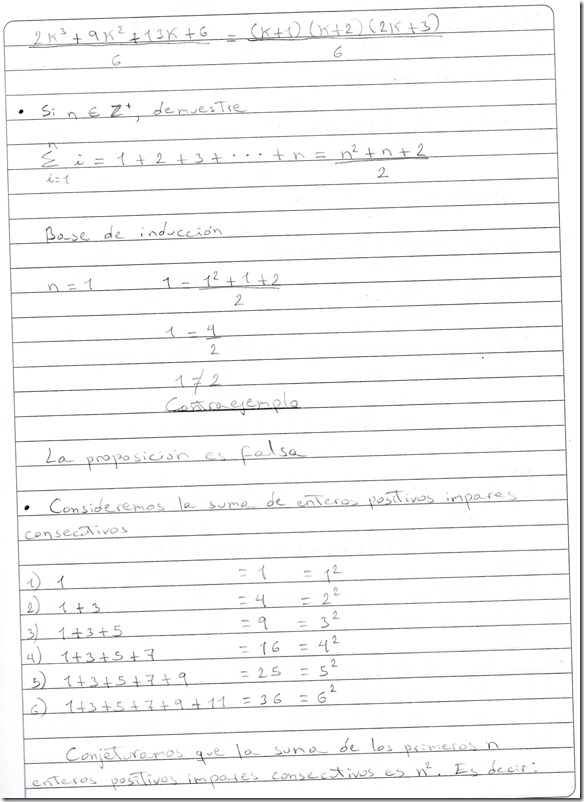 2K³ + 9K² + 13K + 6 / 6 = (K+1)(K+2)(2K+3) / 6
• Si n ∈ Z⁺, demuestre
n
Σ i = 1 + 2 + 3 + ··· + n = n² + n + 2 / 2
i=1
Base de inducción
n = 1 1 = 1² + 1 + 2 / 2
1 = 4 / 2
1 ≠ 2
Contraejemplo
La proposición es falsa
• Consideremos la suma de enteros positivos impares
consecutivos
1) 1 = 1 = 1²
2) 1 + 3 = 4 = 2²
3) 1+3+5 = 9 = 3²
4) 1+3+5+7 = 16 = 4²
5) 1+3+5+7+9 = 25 = 5²
6) 1+3+5+7+9+11 = 36 = 6²
Conjeturamos que la suma de los primeros n
enteros positivos impares consecutivos es n². Es decir: